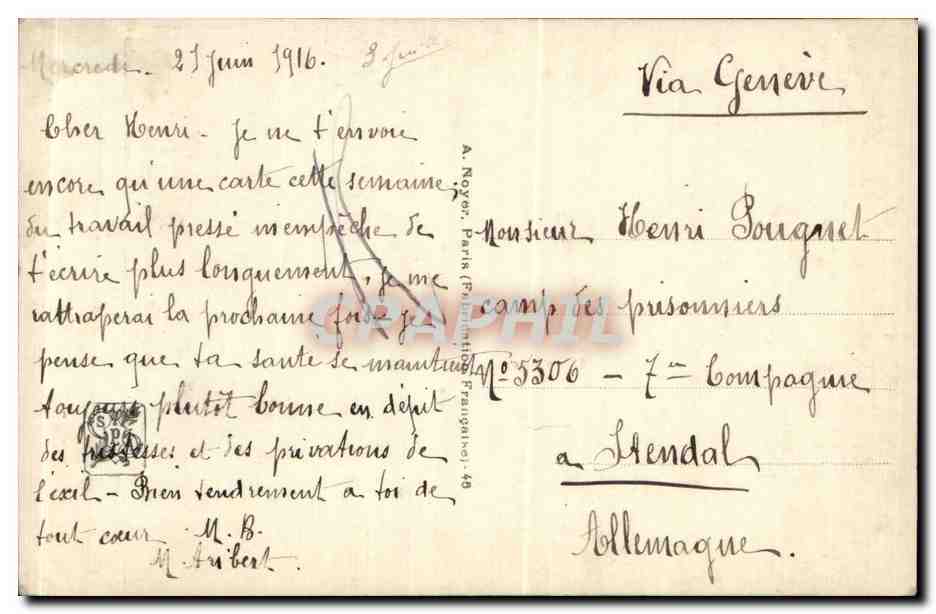 Mercredi. 21 Juin 1916.
Cher Henri - Je ne t'envoie
encore qu'une carte cette semaine,
du travail pressé m'empêche de
t'écrire plus longuement. je me
rattraperai la prochaine fois. Je
pense que ta santé se maintient
toujours plutôt bonne en dépit
des tristesses et des privations de
l'exil - Bien tendrement a toi de
tout cœur M. B.
M. Aribert.
A. Noyer, Paris (Fabrication Française) - 48
Via Genève
Monsieur Henri Pougnet
camp des prisonniers
No 5306 - 7me Compagnie
a Stendal
Allemagne.
CPAPHIL